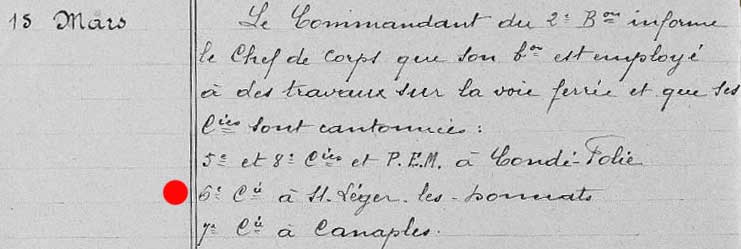 15 Mars Le Commandant du 2e Bon informe
le Chef de Corps que son bon est employé
à des travaux sur la voie ferrée et que ses
Cies sont cantonnées :
5e et 8e Cies et P.E.M. à Condé-Folie
6e Cie à St. Léger-les-Domats
7e Cie à Canaples.